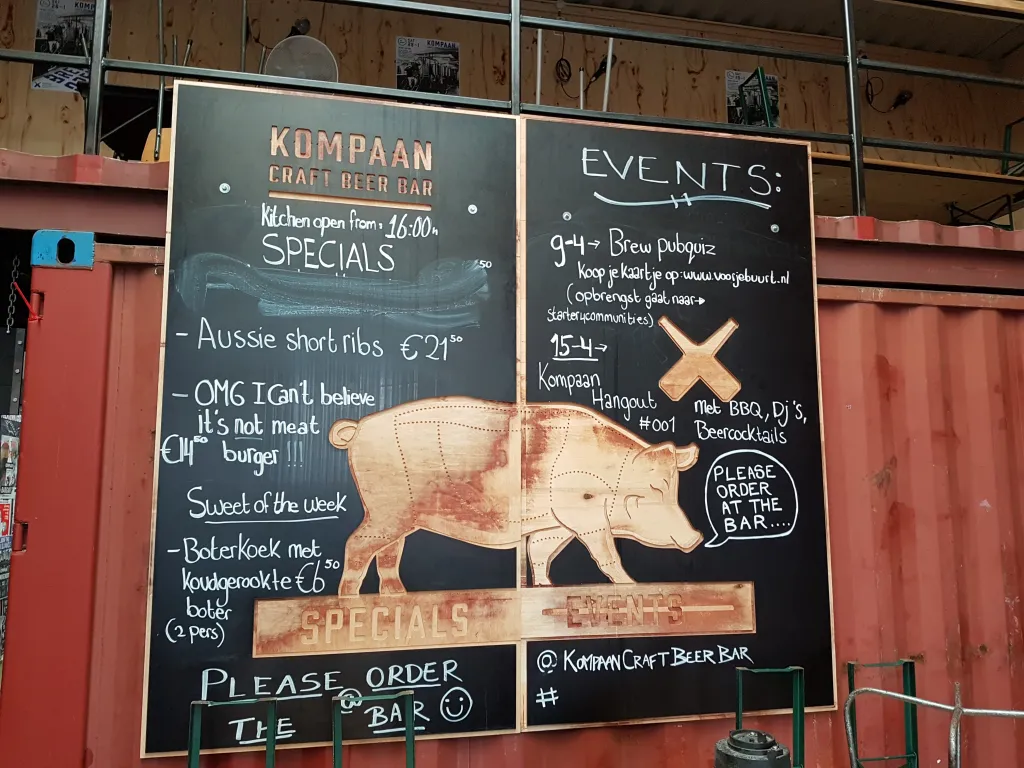 KOMPAAN
CRAFT BEER BAR
Kitchen open from: 16:00h
SPECIALS
50
- Aussie short ribs €21 50
- OMG I Can't believe
it's not meat
€14 50 burger !!!
Sweet of the week
- Boterkoek met
koudgerookte €6 50
boter
(2 pers)
SPECIALS
PLEASE ORDER
@
THE BAR
EVENTS:
9-4→ Brew pubquiz
Koop je kaartje op: www.voorjebuurt.nl
(opbrengst gaat naar→
starter4communities)
15-4→
Kompaan
Hangout
#001
Met BBQ, Dj's,
Beercocktails
PLEASE
ORDER
AT THE
BAR....
EVENTS
@ KOMPAANCRAFTBEERBAR
#
KOMPAAN